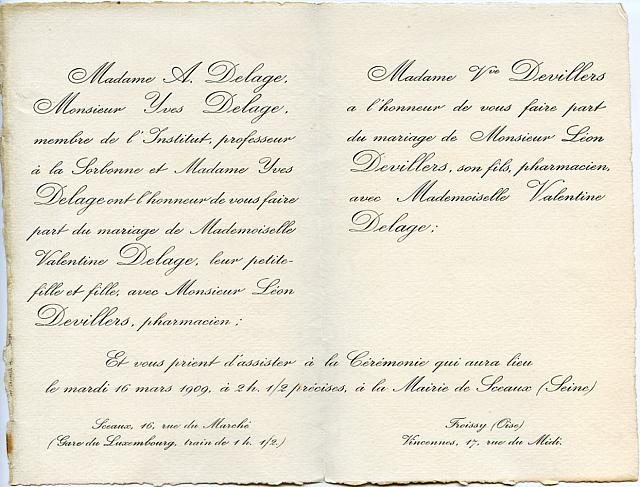 Madame A. Delage,
Monsieur Yves Delage,
membre de l'Institut, professeur
à la Sorbonne et Madame Yves
Delage ont l'honneur de vous faire
part du mariage de Mademoiselle
Valentine Delage, leur petite-
fille et fille, avec Monsieur Léon
Devillers, pharmacien ;
Madame Vve Devillers
a l'honneur de vous faire part
du mariage de Monsieur Léon
Devillers, son fils, pharmacien,
avec Mademoiselle Valentine
Delage ;
Et vous prient d'assister à la Cérémonie qui aura lieu
le mardi 16 mars 1909, à 2 h. 1/2 précises, à la Mairie de Sceaux (Seine)
Sceaux, 16, rue du Marché
(Gare du Luxembourg, train de 1 h. 1/2.)
Froissy (Oise)
Vincennes, 17, rue du Midi.